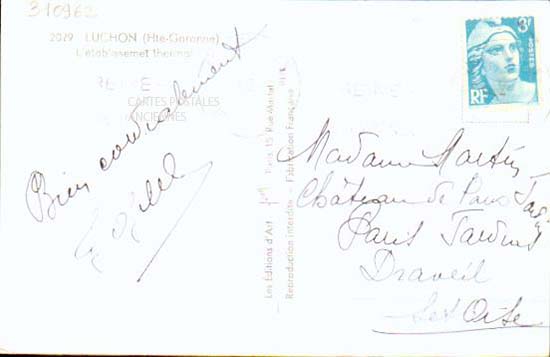 310962
2029 LUCHON (Hte-Garonne)
L'établissemet thermal
CARTES POSTALES
ANCIENNES
Bien cordialement
Les Editions d'Art
Paris 15 Rue Martel
Reproduction interdite - Fabrication Française
3F
RF
Madame Martin
Château de Paris Jardins
Paris Jardins
Draveil
Oise